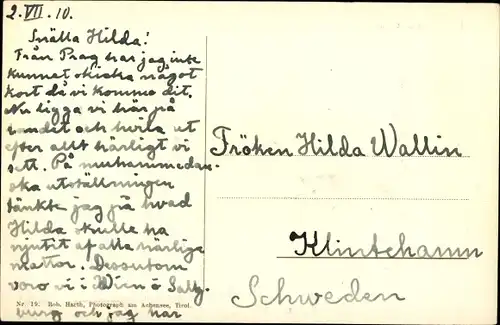 2.VII.10.
Snälla Hilda!
Från Prag har jag inte
kunnat skicka något
kort då vi kommo dit.
Nu ligga vi här på
landet och hvila ut
efter allt härligt vi
sett. På muhammedan-
ska utställningen
tänkte jag på hvad
Hilda skulle ha
njutit af alla härliga
mattor. Dessutom
voro vi i Wien o Salz-
burg och jag har
Nr. 19. Rob. Harth, Photograph am Achensee, Tirol.
Fröken Hilda Wallin
Klintehamn
Schweden